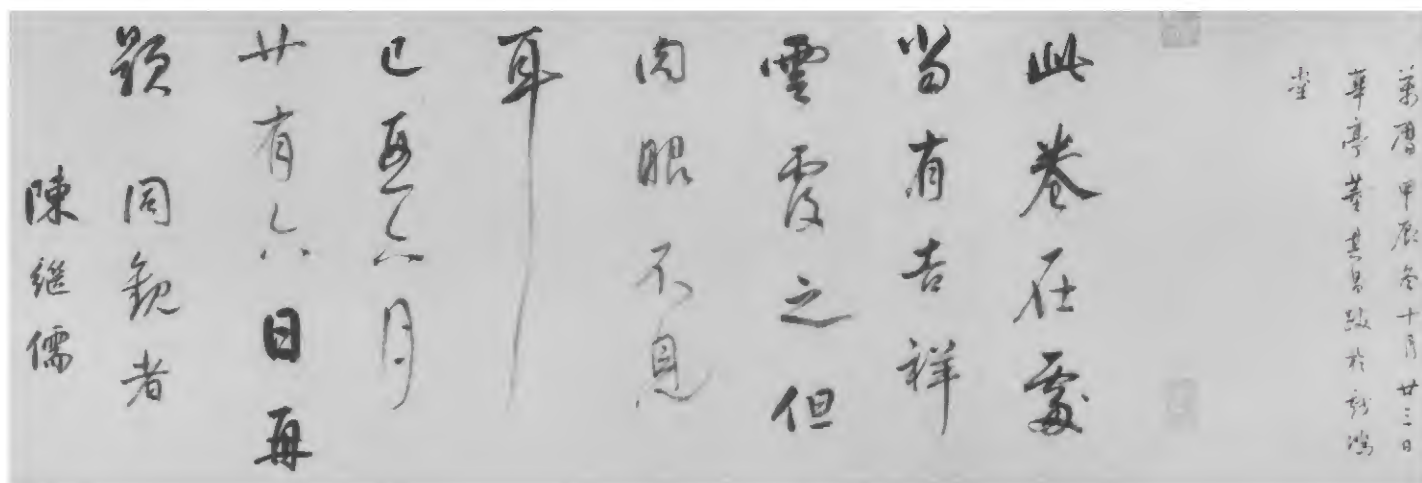 萬曆甲辰冬十月廿三日
華亭董其昌跋於戲鴻
堂
此卷在處
當有吉祥
雲覆之但
肉眼不見
耳
己酉六月
廿有六日再
題 同觀者
陳繼儒